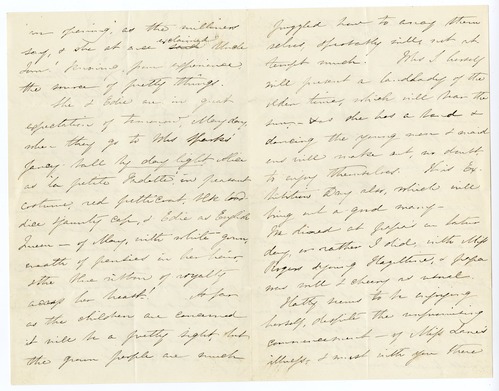 "an opening" as the milliners
say, & she at once exclaimed Uncle
from experience,
the source of pretty things.
She & Edie are in great
expectation of tomorrow, May day,
when they go to Mrs Sparks'
fancy ball by day light. Alice
as "la petite Fadette" in peasant
costume, red petticoat, blk bod-
dice & jaunty cap, & Edie as English
Queen of May, with white gown,
wreath of pansies in her hair
& the blue ribbon of royalty
across her breast. As far
as the children are concerned
it will be a pretty sight, but
the grown people are much
puzzled how to array them
selves, & probably will not at
tempt much. Mrs S herself
will present a landlady of the
olden time, which will
& as she has a band &
dancing the young men & maid
ens will make out, no doubt
to enjoy themselves. It is Ex
hibition Day also, which will
bring out a good many.
We dined at papa's on Satur
day, or rather I did, with Miss
Rogers & young & papa
was well & cheery as usual.
Hatty seems to be enjoying
herself, despite the unpromising
commencement of Miss Lane's
illness, & must with you there